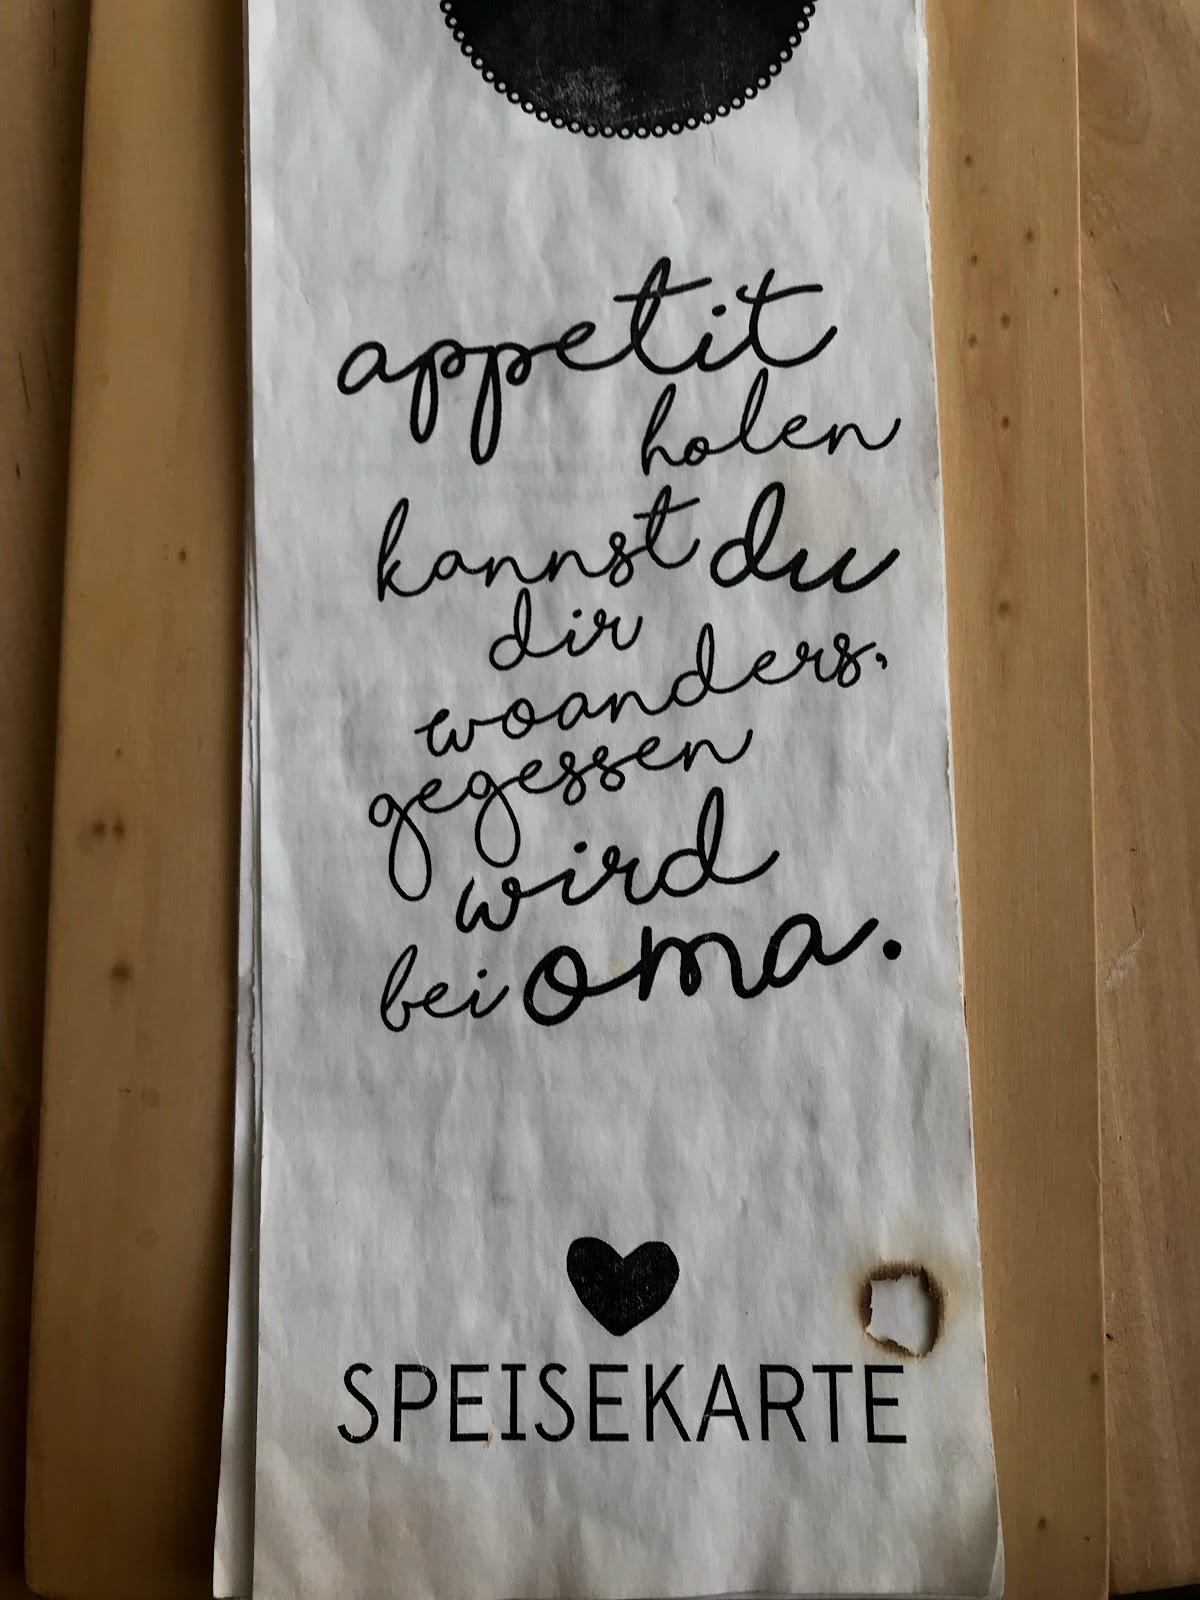 appetit
holen
kannst du
dir
woanders,
gegessen
wird
bei oma.
SPEISEKARTE